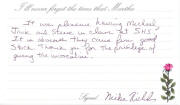 I'll never forget the time that Mother
It was pleasure having Michael,
Jack and Steve in class at SHS.
It is obvious they came from good
stock. Thank you for the privilege of
giving the invocation.
Signed Mike Fields